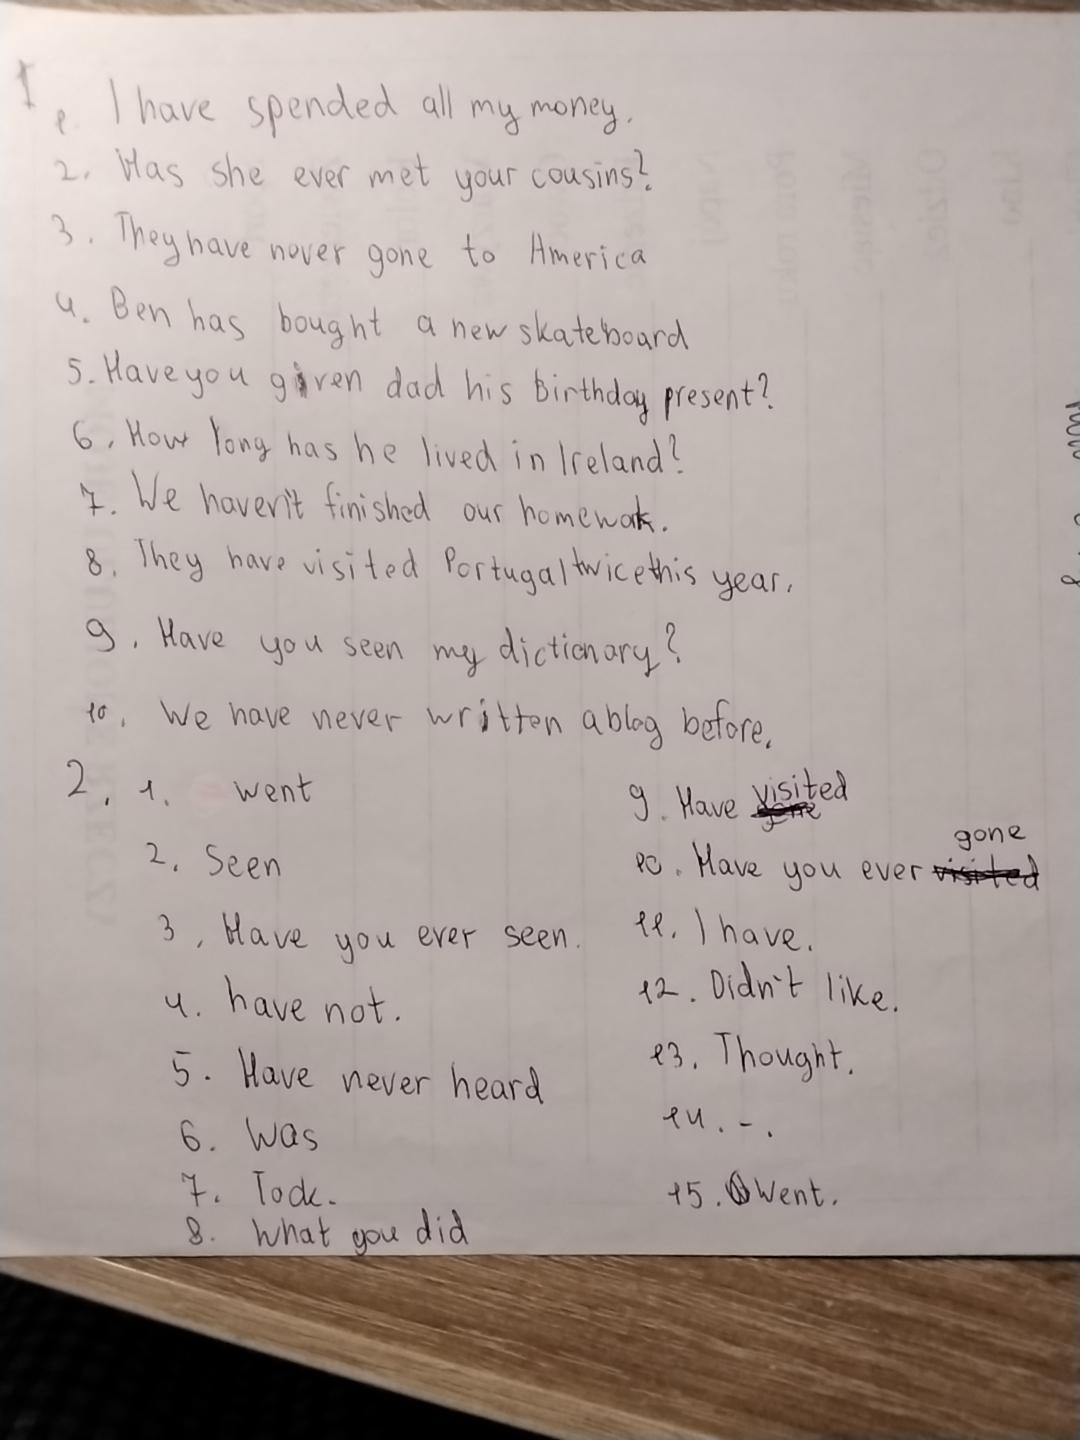 1
1. I have spended all my money.
2. Has she ever met your cousins?
3. They have never gone to America
4. Ben has bought a new skateboard
5. Have you given dad his birthday present?
6. How long has he lived in Ireland?
7. We haven't finished our homewok.
8. They have visited Portugal twice this year.
9. Have you seen my dictionary?
10. We have never written a blog before.
2. 1. went
2. Seen
3. Have you ever seen.
4. have not.
5. Have never heard
6. Was
7. Took.
8. What you did
9. Have visited
10. Have you ever gone
11. I have.
12. Didn't like.
13. Thought.
14. -.
15. Went.